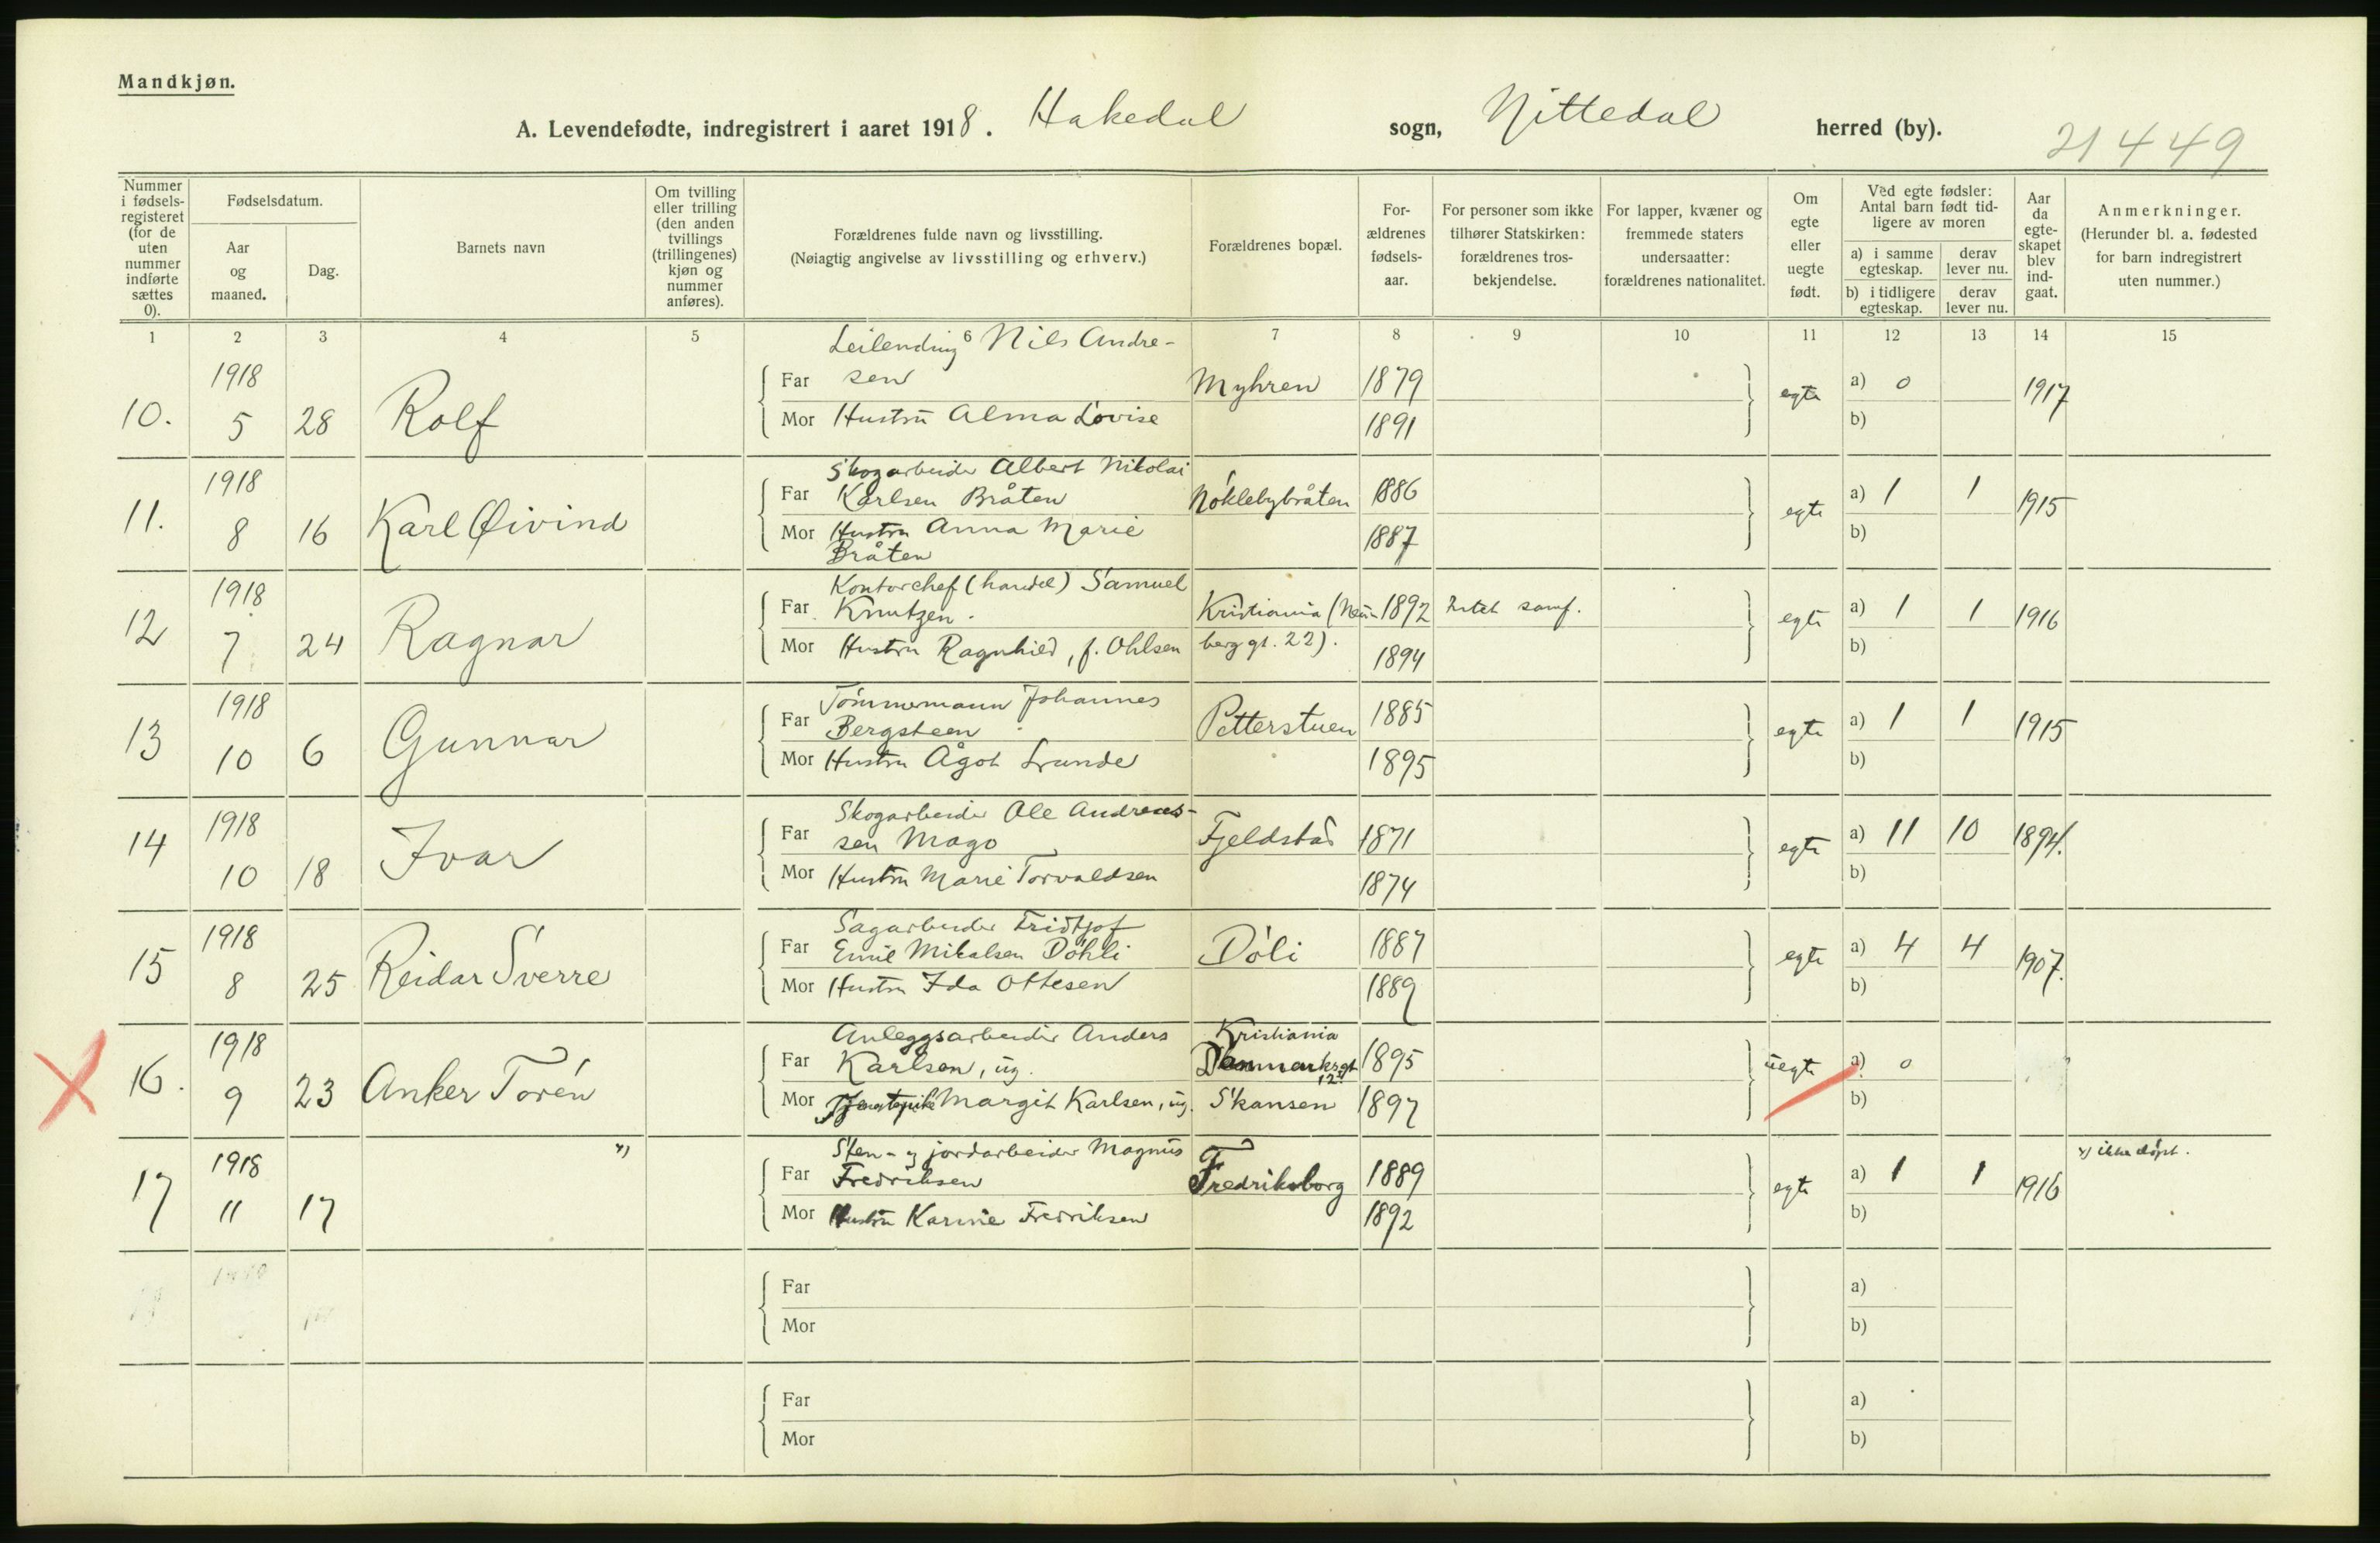 Mandkjøn.
A. Levendefødte, indregistrert i aaret 1918. Hakedal sogn, Nittedal herred (by).
21449
Nummer i fødsels-registeret (for de uten nummer indførte sættes 0).
Fødselsdatum.
Aar og maaned.
Dag.
Barnets navn
Om tvilling eller trilling (den anden tvillings (trillingenes) kjøn og nummer anføres).
Forældrenes fulde navn og livsstilling.
(Nøiagtig angivelse av livsstilling og erhverv.)
Forældrenes bopæl.
For-ældrenes fødsels-aar.
For personer som ikke tilhører Statskirken: forældrenes tros-bekjendelse.
For lapper, kvæner og fremmede staters undersaatter: forældrenes nationalitet.
Om egte eller uegte født.
Ved egte fødsler: Antal barn født tid-ligere av moren
a) i samme egteskap.
derav lever nu.
b) i tidligere egteskap.
derav lever nu.
Aar da egte-skapet blev ind-gaat.
Anmerkninger.
(Herunder bl. a. fødested for barn indregistrert uten nummer.)
1 2 3 4 5 6 7 8 9 10 11 12 13 14 15
Leilending Nils Andre-
10. 1918 5 28 Rolf Far sen Myhren 1879 egte a) 0 1917
Mor Hustru Alma Lovise 1891 b)
Skogarbeider Albert Nikolai
11. 1918 8 16 Karl Øivind Far Karlsen Bråten Nöklebybråten 1886 egte a) 1 1 1915
Mor Hustru Anna Marie 1887 b)
Bråten
Kontorchef (handel) Samuel
12 1918 7 24 Ragnar Far Knutzen. Kristiania 1892 samf. egte a) 1 1 1916
Mor Hustru Ragnhild, f. Ohlsen berg gt. 22). 1894 b)
Tömmermann Johannes
13 1918 10 6 Gunnar Far Bergsteen Petterstuen 1885 egte a) 1 1 1915
Mor Hustru Ågot Lrunde 1895 b)
Skogarbeider Ole Andreas-
14 1918 10 18 Ivar Far sen Mago Fjeldstad 1871 egte a) 11 10 1894.
Mor Hustru Marie Torvaldsen 1874 b)
Sagarbeider Fridtjof
15 1918 8 25 Reidar Sverre Far Emil Mikalsen Döhli Döli 1887 egte a) 4 4 1907.
Mor Hustru Ida Ottesen 1889 b)
Anleggsarbeider Anders Kristiania
16. 1918 9 23 Anker Torén Far Karlsen, ug. Danmarksgt 12 1895 uegte a) 0
Mor Tjenestepike Margit Karlsen, ug. Skansen 1897 b)
Sten- og jordarbeider Magnus
17 1918 11 17 x) Far Fredriksen Fredriksborg 1889 egte a) 1 1 1916 x) ikke döpt.
Mor Hustru Karine Fredriksen 1892 b)
Far a)
Mor b)
Far a)
Mor b)